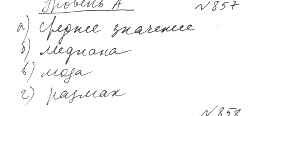 Уровень А №857
а) среднее значение
б) медиана
в) мода
г) размах
№858